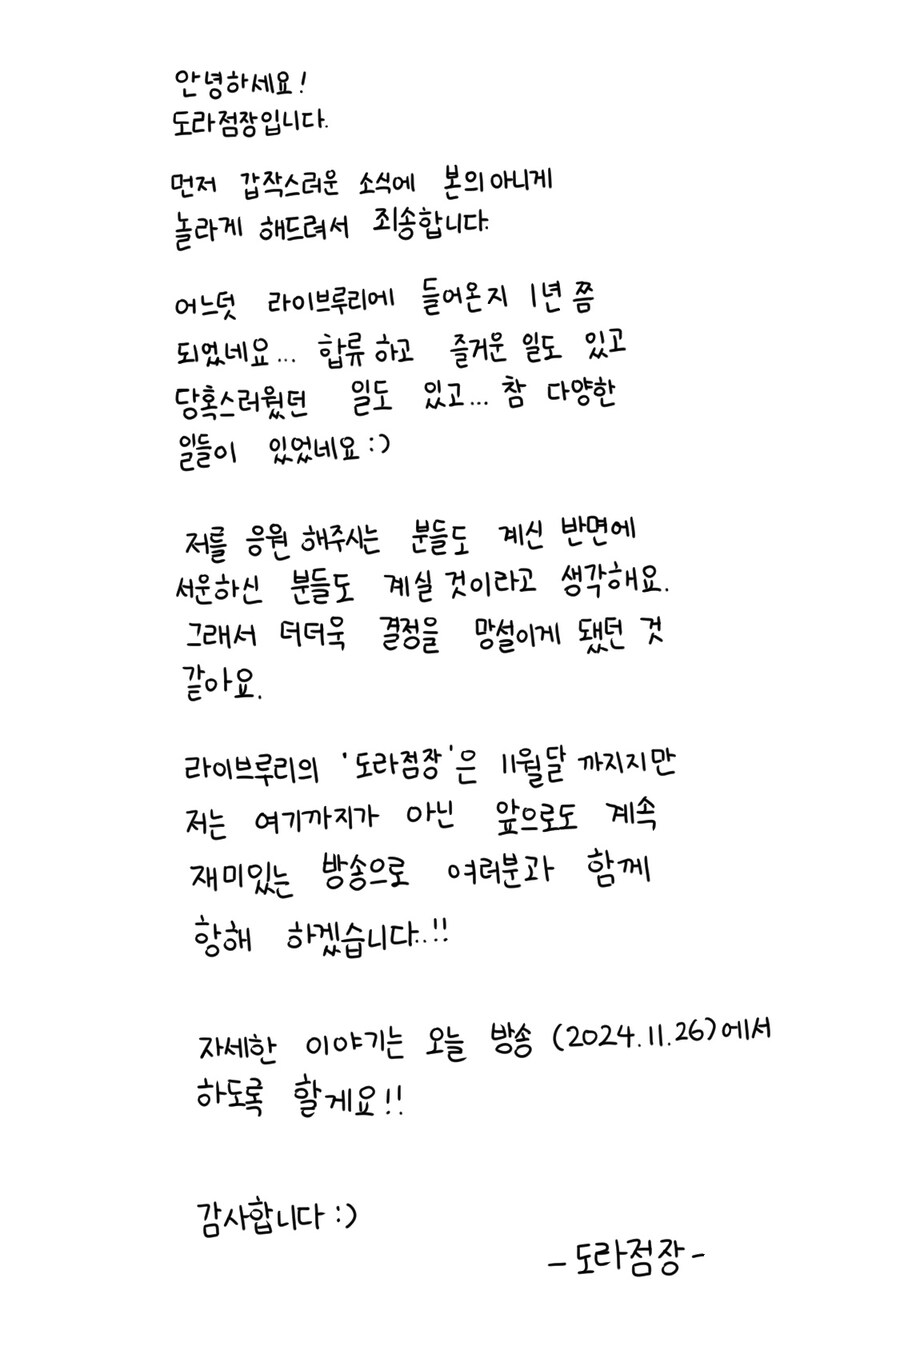 안녕하세요!
도라점장입니다.
먼저 갑작스러운 소식에 본의아니게
놀라게 해드려서 죄송합니다.
어느덧 라이브루리에 들어온지 1년 쯤
되었네요... 합류하고 즐거운 일도 있고
당혹스러웠던 일도 있고... 참 다양한
일들이 있었네요 :)
저를 응원 해주시는 분들도 계신 반면에
서운하신 분들도 계실 것이라고 생각해요.
그래서 더더욱 결정을 망설이게 됐던 것
같아요.
라이브루리의 '도라점장'은 11월달 까지지만
저는 여기까지가 아닌 앞으로도 계속
재미있는 방송으로 여러분과 함께
항해 하겠습니다..!!
자세한 이야기는 오늘 방송 (2024.11.26)에서
하도록 할게요!!
감사합니다 :)
- 도라점장 -